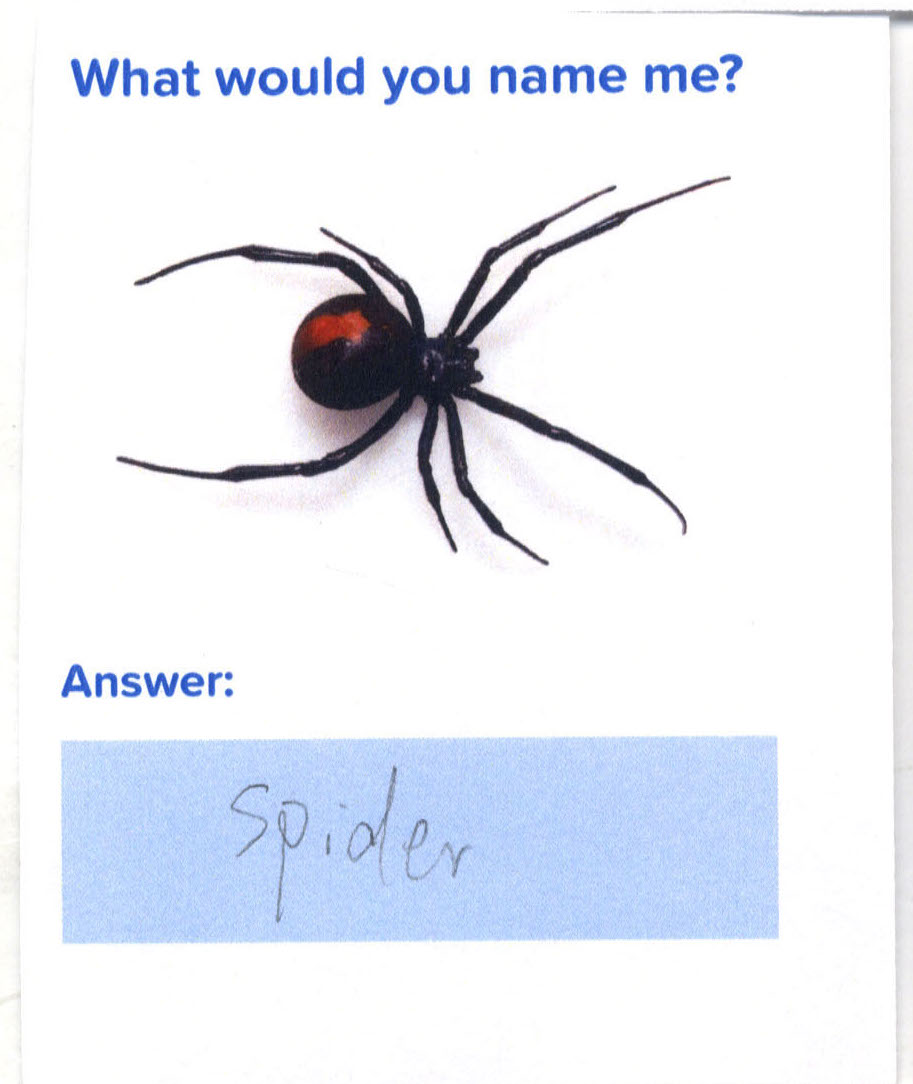 What would you name me?
Answer:
Spider